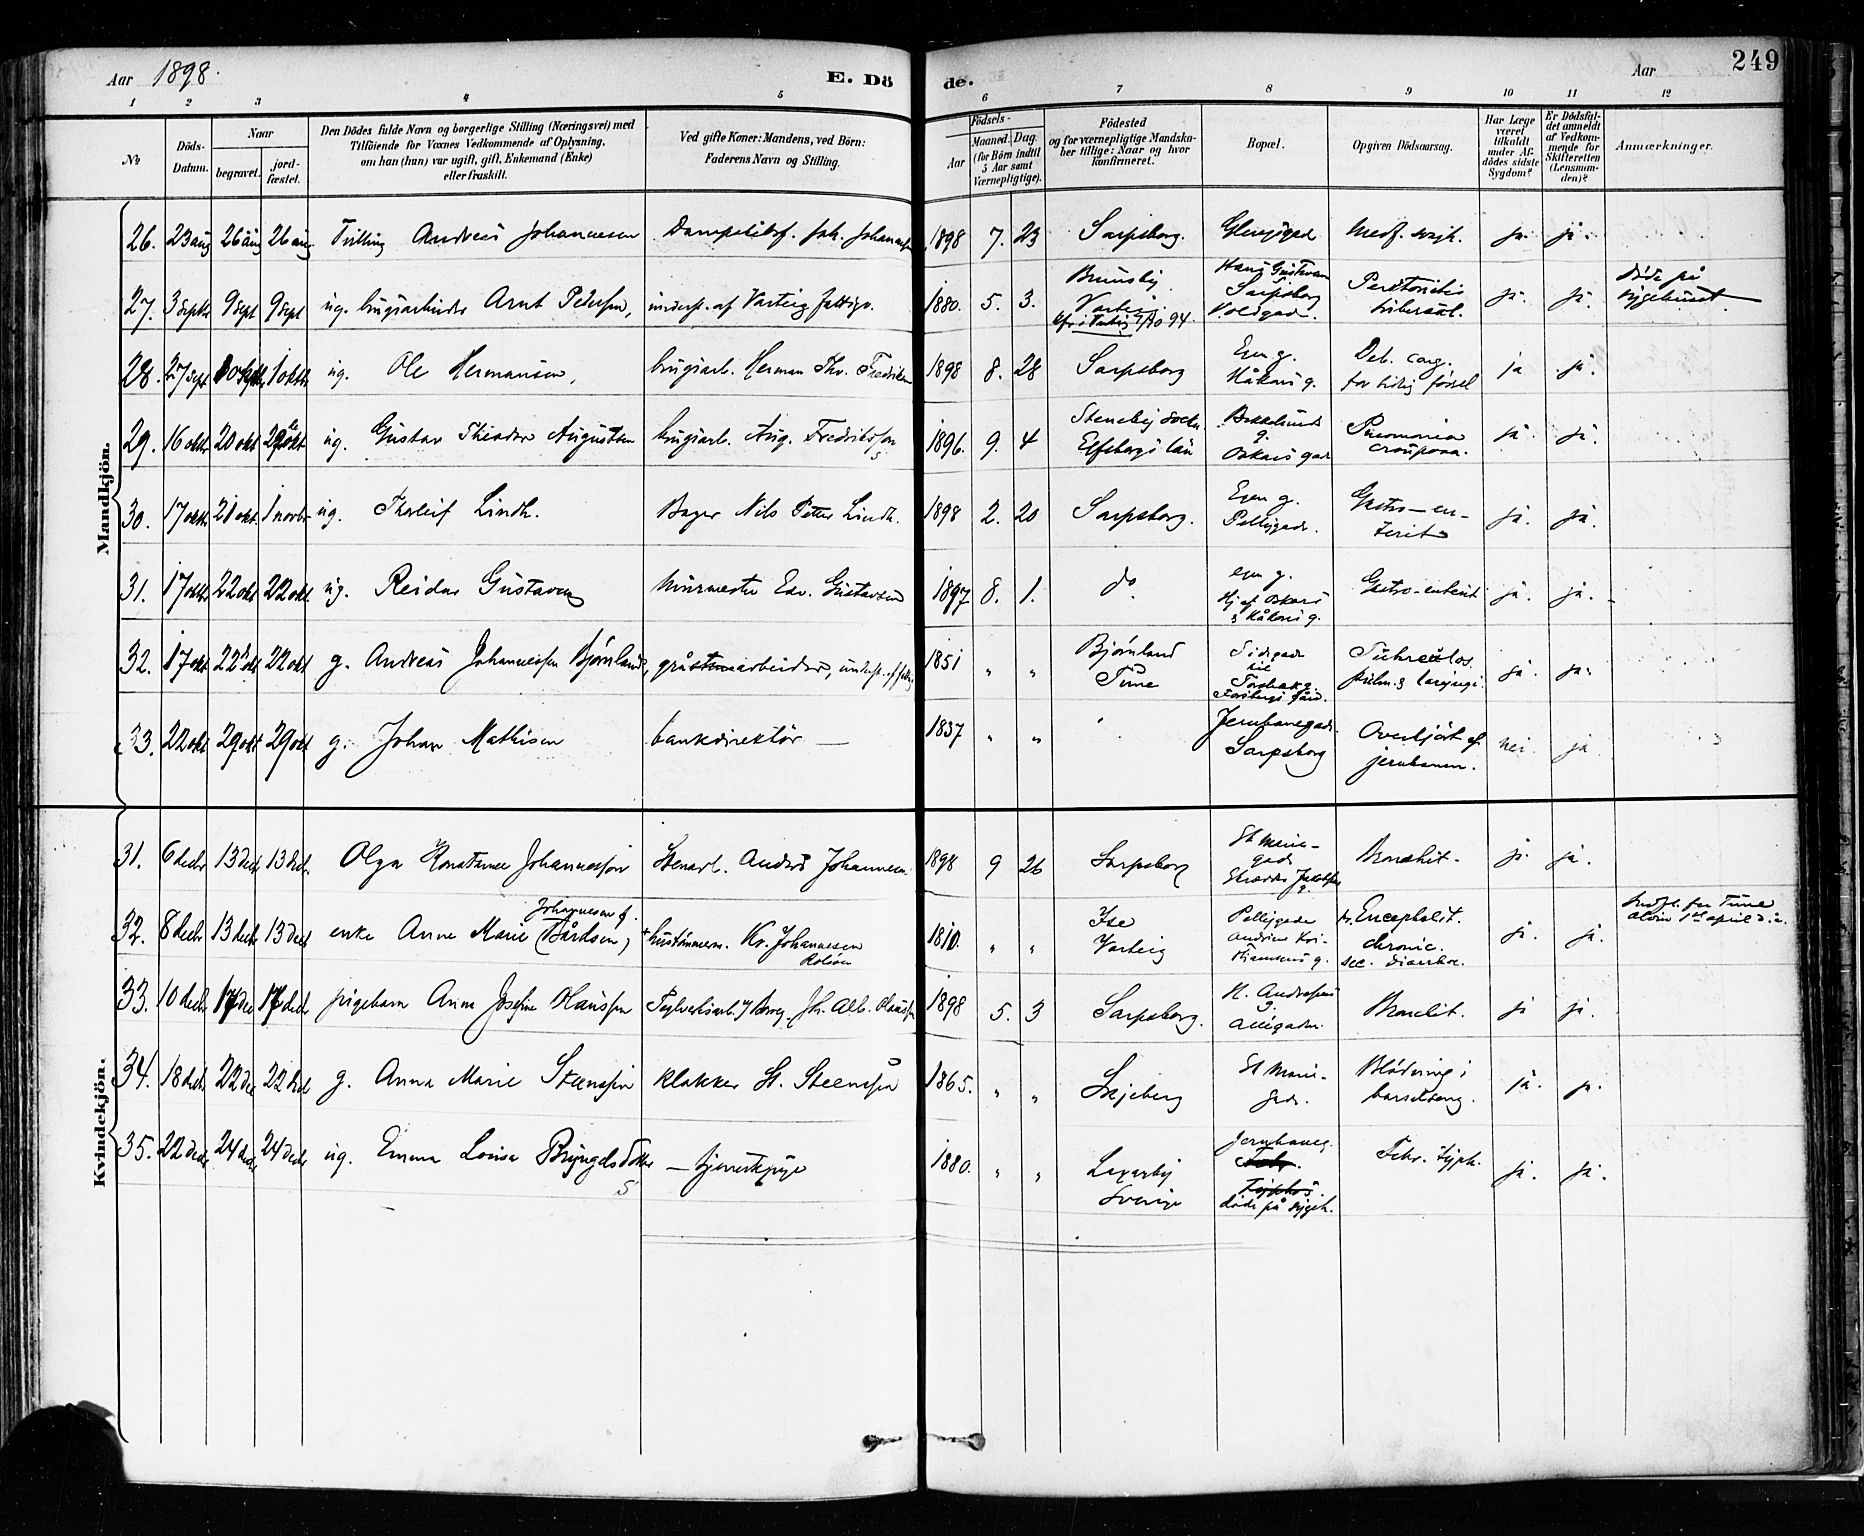 Aar 1898.
E. Dö
de.
Aar
249
1 2 3 4 5 6 7 8 9 10 11 12
№
Döds-
Datum.
Naar
begravet.
jord-
fæstet.
Den Dödes fulde Navn og borgerlige Stilling (Næringsvei) med
Tilföiende for Voxnes Vedkommende af Oplysning,
om han (hun) var ugift, gift, Enkemand (Enke)
eller fraskilt.
Ved gifte Koner: Mandens, ved Börn:
Faderens Navn og Stilling.
Födsels-
Aar
Maaned. Dag.
(for Börn indtil
5 Aar samt
Værnepligtige).
Födested
og for værnepligtige Mandska-
ber tillige: Naar og hvor
konfirmeret.
Bopæl.
Opgiven Dödsaarsag.
Har Læge
været
tilkaldt
under Af-
dödes sidste
Sygdom?
Er Dödsfal-
det anmeldt
af Vedkom-
mende for
Skifteretten
(Lensman-
den)?
Anmærkninger.
Mandkjön.
26. 23 aug 26 aug 26 aug. Tvilling Andreas Johannesen Joh. Johannesen 1898 7. 23 Sarpsborg. Glengsgad. ja. ja.
27. 3 septbr 9 sept 9 sept ug. brugsarbeider Arnt Pedersen, underst. af Varteig fattigv. 1880. 5. 3. Brunsby Varteig 94. Hans Gustavsen Sarpsborg Voldgad. Peritonitis ja. ja. døde på sygehuset
28. 27 sept. 1 oktbr ug. Ole Hermansen, brugsarb. Herman Thv. Fredriksen 1898 8. 28 Sarpsborg Egen g. Håkons g. Deb. cong. for tidlig fødsel ja ja.
29. 16 oktbr 20 okt ug. Gustav Theodor Augustsen brugsarb. Aug. Fredriksson 1896. 9. 4 Steneby socken Elfsborgs län Oskars gad Pneumonia crouposa. ja. ja.
30. 17 oktbr 21 okt. 1 novbr ug. Thorleif Lindh. Bager Nils Petter Lindh. 1898 2. 20 Sarpsborg. Egen g. Pellygad. Gastro-en-
terit ja. ja.
31. 17 oktbr 22 okt 22 okt. ug. Reidar Gustavsen murmester Edv. Gustavsen 1897 8. 1. do egen g. Hj. af Oskars & Håkons g. Gastro-enterit ja. ja.
32. 17 okt 22 okt 22 okt g. Andreas Johannessen Bjørnland, gråstenarbeider, underst. af fattigv. 1851 " " Bjørnland Tune Tuberculos. pulm. & laryngis. ja. ja.
33. 22 okt 29 okt 29 okt g. Johan Mathisen bankdirektør — 1837 " " Jernbanegad. Sarpsborg Overkjørt af jernbanen. nei. ja
Kvindekjön.
31. 6 decbr 13 decbr 13 decbr Olga Konstance Johannessen Stenarb. Andrés Johannesen 1898 9 26 Sarpsborg St Marie-
gad. Bronchit. ja. ja.
32. 8 decbr 13 decbr 13 decbr enke Anne Marie Johannesen f. (Bårdsen) husmand Kr. Johannesen 1810. " " Ise Varteig Pellygade Andrine Kri-
stiansens g. Encephalit. chronic. sec. diarrhoe. ja. ja. Indfl. fra Tune
33. 10 decbr 17 decbr pigebarn Anna Josefine Hanssen Alb. Hanssen 1898 5. 3 Sarpsborg. N. Andresens g. Allégaden. Bronchit. ja ja.
34. 18 decbr 22 dec 22 decbr g. Anna Marie Steenssen klokker St. Steenssen 1865. " " Skjeberg St Marie-
gad. Blødning i barselseng. ja. ja.
35. 22 decbr 24 decbr 24 decbr ug. Emma Lovisa Bryngelsdotter — tjenestepige 1880. " " Laxarby Sverige Jernbaneg. døde på sygeh. Febr. typh. ja. ja.